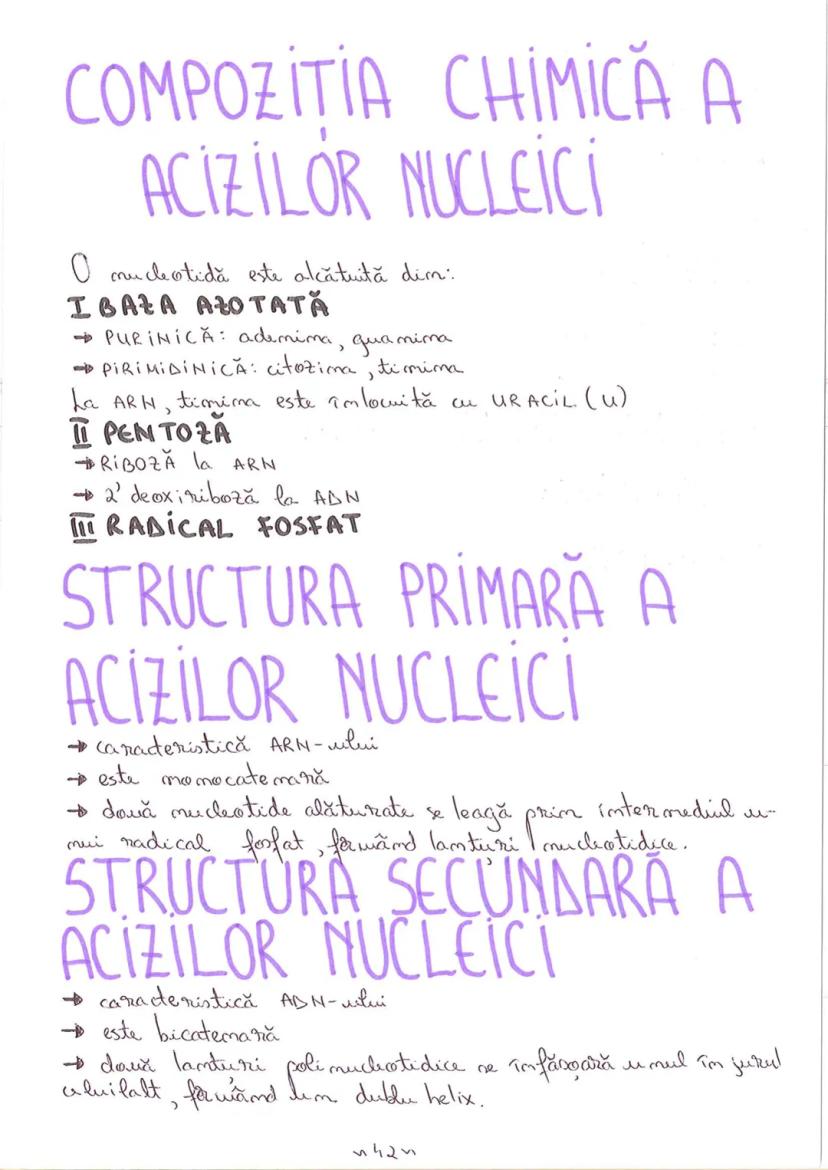 COMPOZIȚIA CHIMICĂ A
ACIZILOR NUCLEICI
O nucleotidă este alcătuită din:
I BAZA AZOTATĂ
→ PURINICĂ: adenina, guanina
→ PIRIMIDINICĂ: citozina, timina
La ARN, timina este înlocuită cu URACIL (U)
II PENTOZĂ
→ RIBOZĂ la ARN
→ 2' deoxiriboză la ADN
III RADICAL FOSFAT
STRUCTURA PRIMARĂ A
ACIZILOR NUCLEICI
→ caracteristică ARN-ului
→ este monocatenară
→ două nucleotide alăturate se leagă prin intermediul u-
nui radical fosfat, formând lanțuri nucleotidice.
STRUCTURA SECUNDARĂ A
ACIZILOR NUCLEICI
→ caracteristică ADN-ului
→ este bicatenară
→ două lanțuri polinucleotidice se înfășoară unul în jurul
celuilalt, formând un dublu helix.
~42~